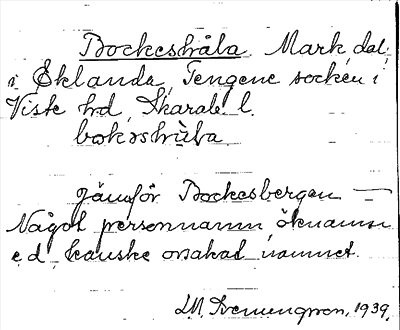 Bockeshåla, Mark, dal,
i Eklanda, Tengene socken i
Viste hd, Skarab. l.
bokəshùla
Jämför Bockesbergen —
Något personnamn, öknamn
e.d. kanske orsakat namnet.
1939.